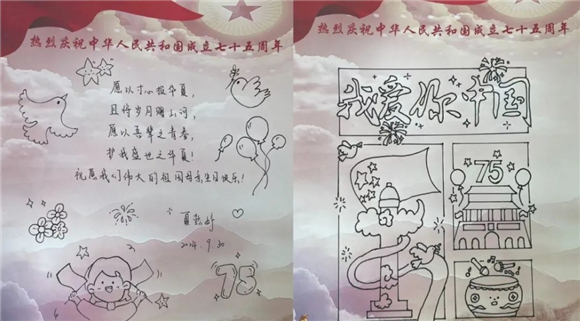 热烈庆祝中华人民共和国成立七十五周年
愿以寸心报华夏，
且将岁月赠山河，
愿以吾辈之青春，
护我盛世之华夏！
祝愿我们伟大的祖国母亲生日快乐！
2024.9.30
75
热烈庆祝中华人民共和国成立七十五周年
我爱你中国
75